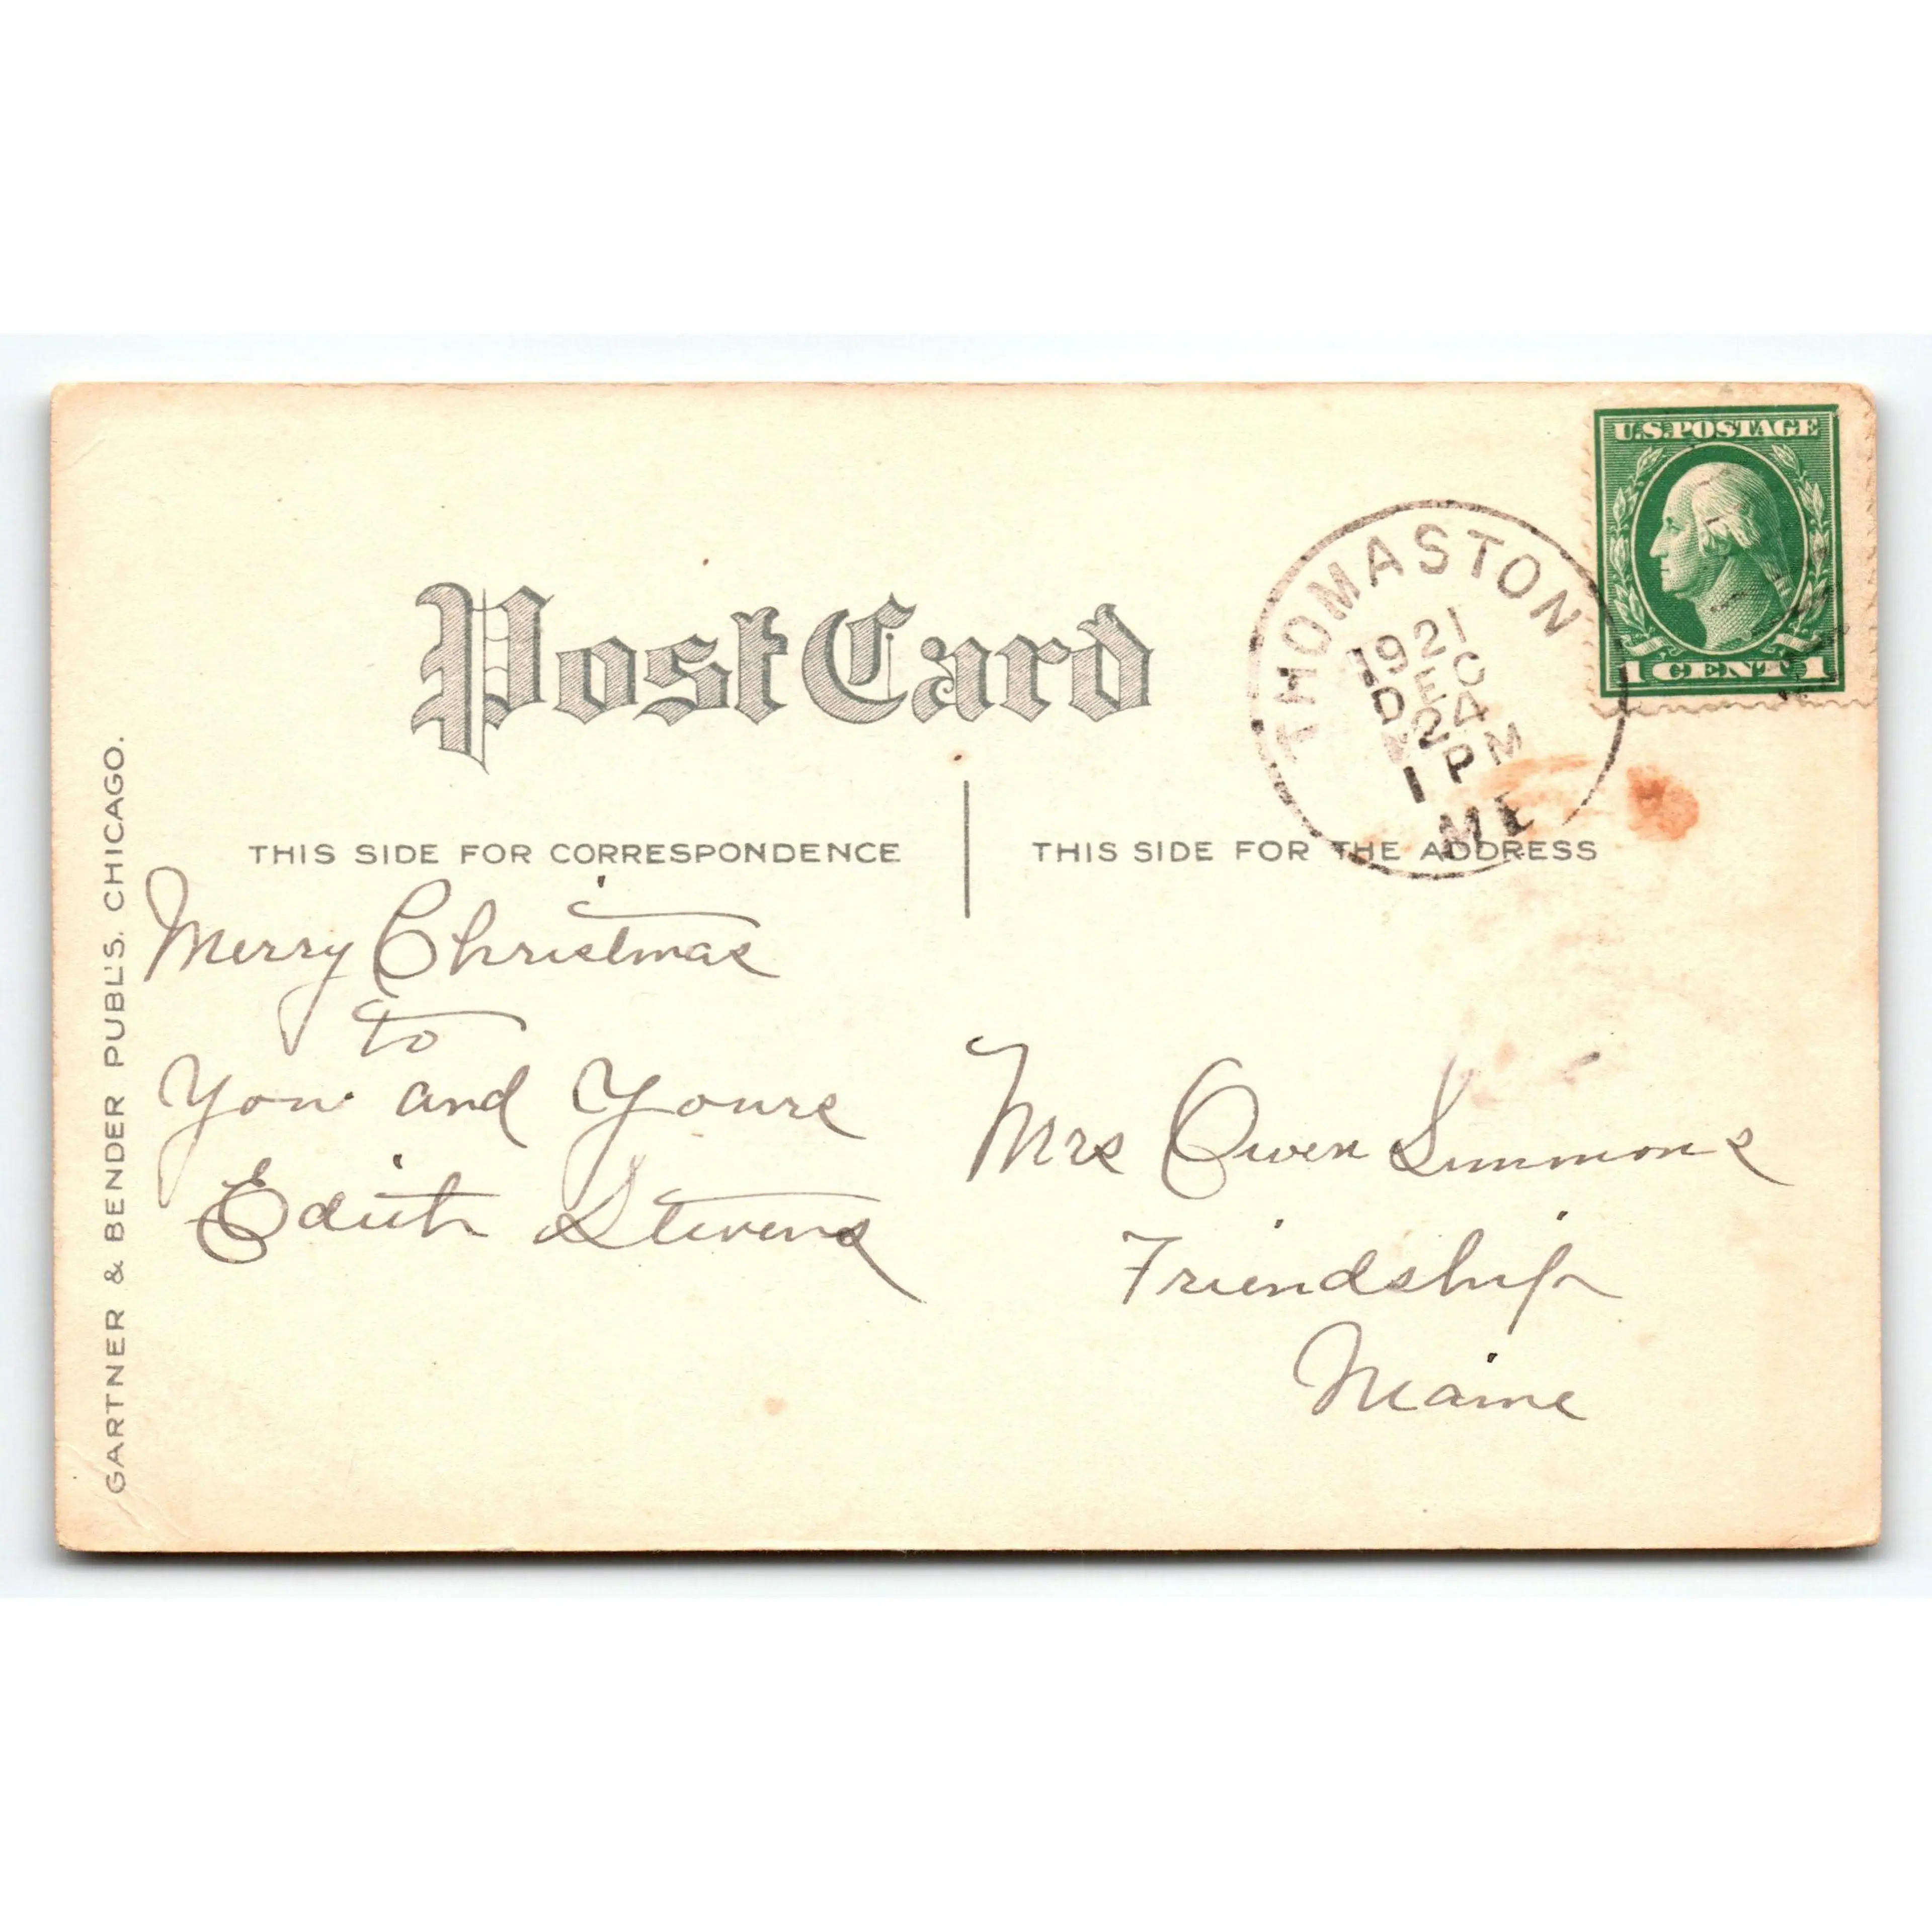 U.S. POSTAGE
1 CENT 1
THOMASTON
1921
DEC
24
1 PM
ME
Post Card
THIS SIDE FOR CORRESPONDENCE
THIS SIDE FOR THE ADDRESS
Merry Christmas
to
You and Yours
Edith Stevens
Mrs Owen Simmons
Friendship
Maine
GARTNER & BENDER PUBL'S. CHICAGO.